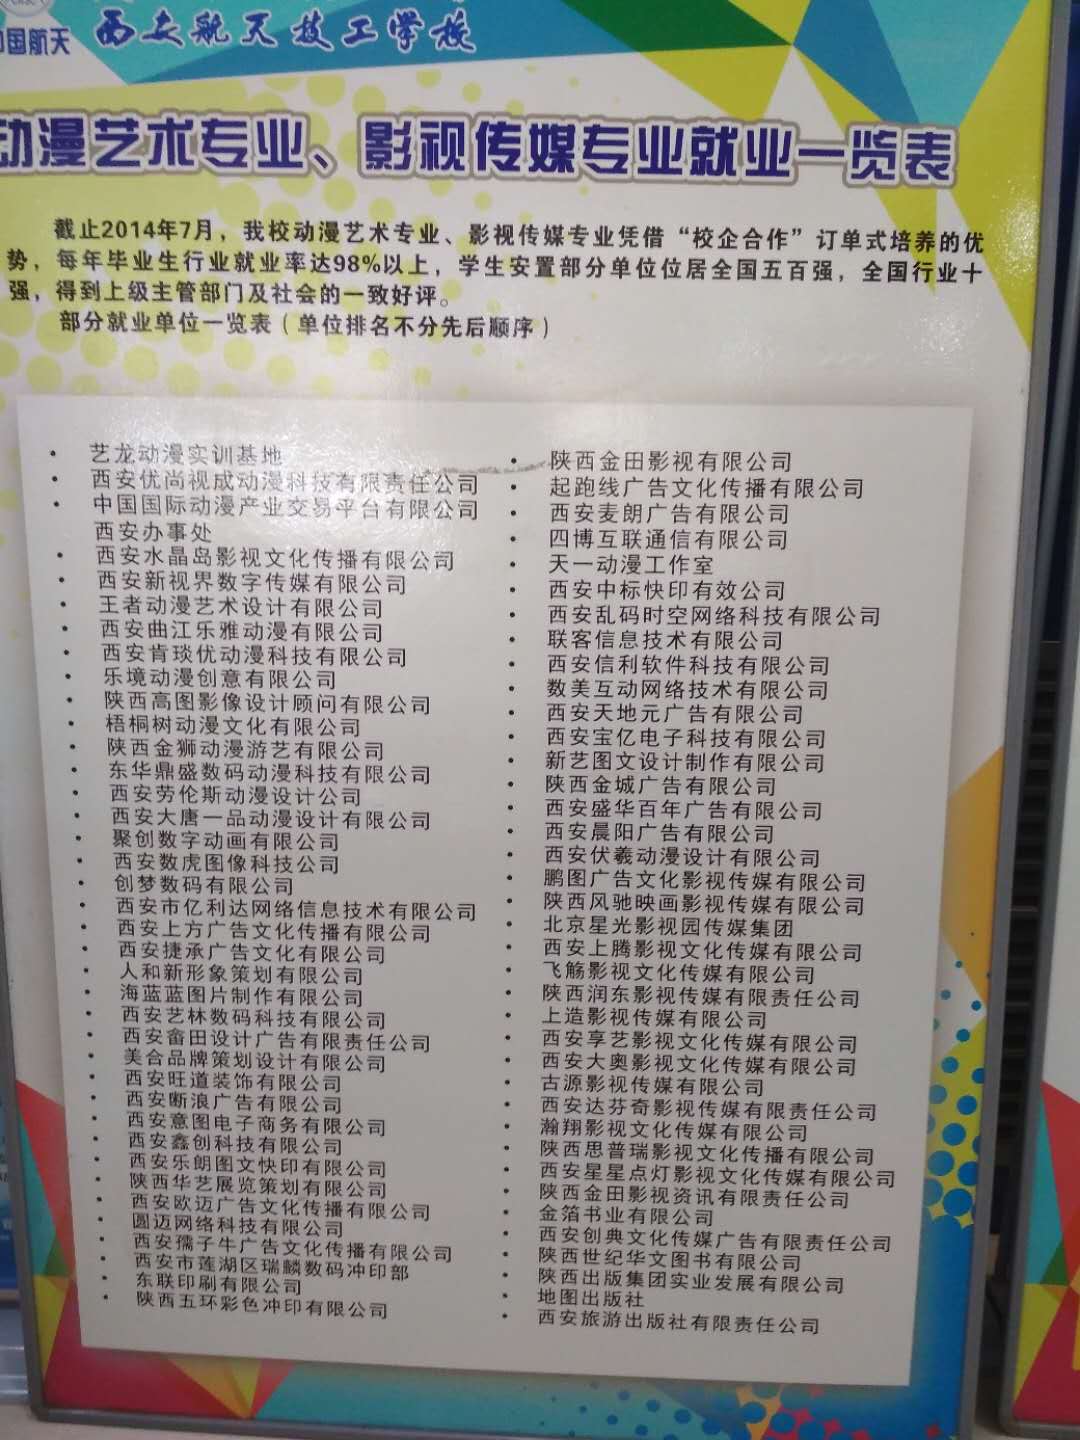 中国航天
西安航天技工学校
动漫艺术专业、影视传媒专业就业一览表
截止2014年7月，我校动漫艺术专业、影视传媒专业凭借“校企合作”订单式培养的优
势，每年毕业生行业就业率达98%以上，学生安置部分单位位居全国五百强，全国行业十
强，得到上级主管部门及社会的一致好评。
部分就业单位一览表（单位排名不分先后顺序）
· 艺龙动漫实训基地
· 西安优尚视成动漫科技有限责任公司
· 中国国际动漫产业交易平台有限公司
西安办事处
· 西安水晶岛影视文化传播有限公司
· 西安新视界数字传媒有限公司
· 王者动漫艺术设计有限公司
· 西安曲江乐雅动漫有限公司
· 西安肯琰优动漫科技有限公司
· 乐境动漫创意有限公司
· 陕西高图影像设计顾问有限公司
· 梧桐树动漫文化有限公司
· 陕西金狮动漫游艺有限公司
· 东华鼎盛数码动漫科技有限公司
· 西安劳伦斯动漫设计公司
· 西安大唐一品动漫设计有限公司
· 聚创数字动画有限公司
· 西安数虎图像科技公司
· 创梦数码有限公司
· 西安市亿利达网络信息技术有限公司
· 西安上方广告文化传播有限公司
· 西安捷承广告文化有限公司
· 人和新形象策划有限公司
· 海蓝蓝图片制作有限公司
· 西安艺林数码科技有限公司
· 西安畲田设计广告有限责任公司
· 美合品牌策划设计有限公司
· 西安旺道装饰有限公司
· 西安断浪广告有限公司
· 西安意图电子商务有限公司
· 西安鑫创科技有限公司
· 西安乐朗图文快印有限公司
· 陕西华艺展览策划有限公司
· 西安欧迈广告文化传播有限公司
· 圆迈网络科技有限公司
· 西安孺子牛广告文化传播有限公司
· 西安市莲湖区瑞麟数码冲印部
· 东联印刷有限公司
· 陕西五环彩色冲印有限公司
· 陕西金田影视有限公司
· 起跑线广告文化传播有限公司
· 西安麦朗广告有限公司
· 四博互联通信有限公司
· 天一动漫工作室
· 西安中标快印有效公司
· 西安乱码时空网络科技有限公司
· 联客信息技术有限公司
· 西安信利软件科技有限公司
· 数美互动网络技术有限公司
· 西安天地元广告有限公司
· 西安宝亿电子科技有限公司
· 新艺图文设计制作有限公司
· 陕西金城广告有限公司
· 西安盛华百年广告有限公司
· 西安晨阳广告有限公司
· 西安伏羲动漫设计有限公司
· 鹏图广告文化影视传媒有限公司
· 陕西风驰映画影视传媒有限公司
· 北京星光影视园传媒集团
· 西安上腾影视文化传媒有限公司
· 飞觞影视文化传媒有限公司
· 陕西润东影视传媒有限责任公司
· 上造影视传媒有限公司
· 西安享艺影视文化传媒有限公司
· 西安大奥影视文化传媒有限公司
· 古源影视传媒有限公司
· 西安达芬奇影视传媒有限责任公司
· 瀚翔影视文化传媒有限公司
· 陕西思普瑞影视文化传播有限公司
· 西安星星点灯影视文化传媒有限公司
· 陕西金田影视资讯有限责任公司
· 金箔书业有限公司
· 西安创典文化传媒广告有限责任公司
· 陕西世纪华文图书有限公司
· 陕西出版集团实业发展有限公司
· 地图出版社
· 西安旅游出版社有限责任公司